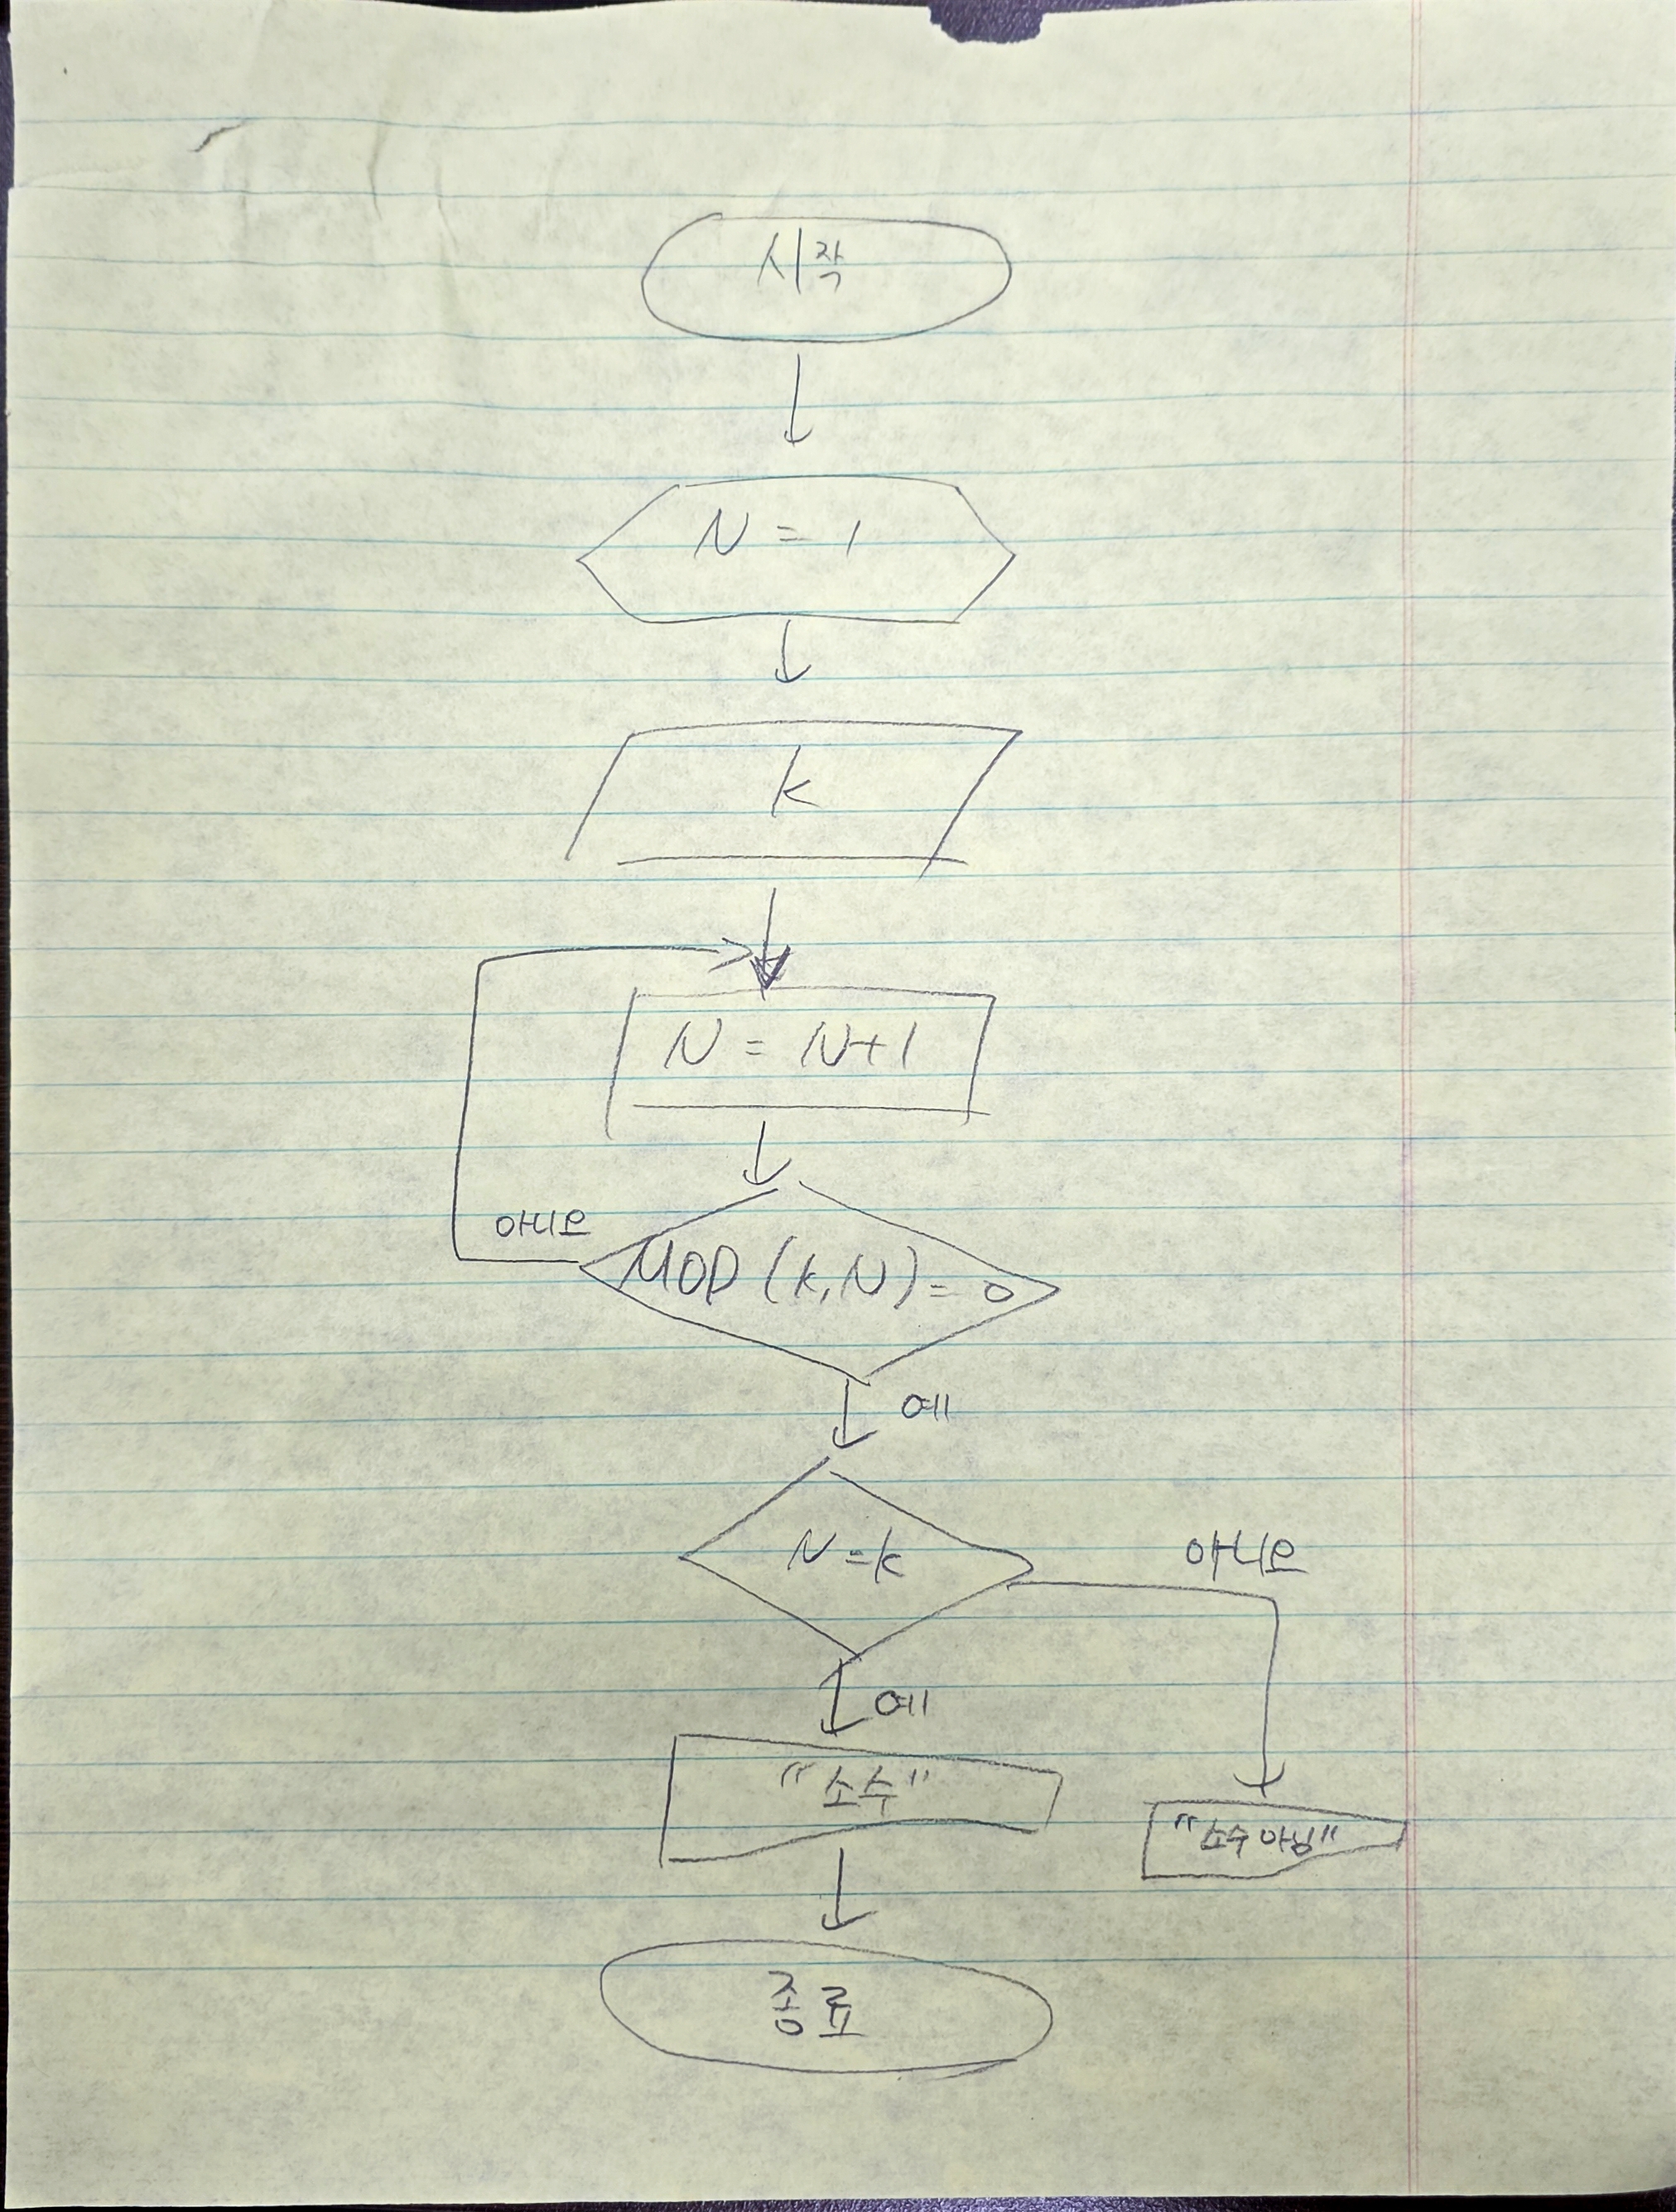 시작
N = 1
K
N = N+1
아니요
MOD (K,N) = 0
예
N=K
아니요
예
"소수"
"소수 아님"
종료